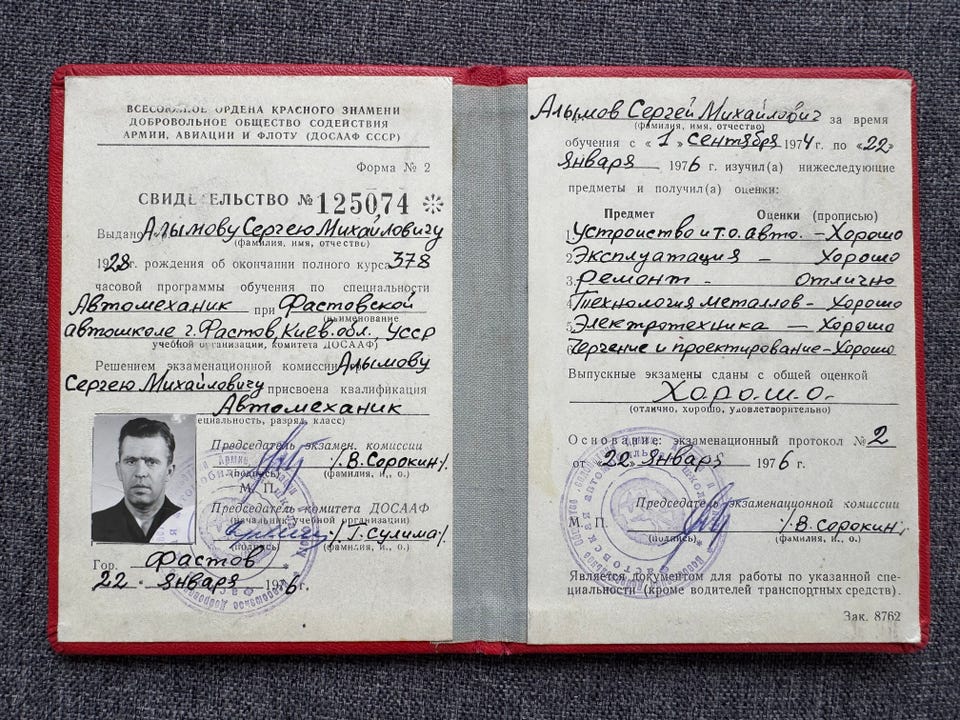 ВСЕСОЮЗНОЕ ОРДЕНА КРАСНОГО ЗНАМЕНИ
ДОБРОВОЛЬНОЕ ОБЩЕСТВО СОДЕЙСТВИЯ
АРМИИ, АВИАЦИИ И ФЛОТУ (ДОСААФ СССР)
Форма № 2
СВИДЕТЕЛЬСТВО № 125074
Выдано Алымову Сергею Михайловичу
(фамилия, имя, отчество)
1928 г. рождения об окончании полного курса 378
часовой программы обучения по специальности
Автомеханик при Фастовской
наименование
автошколе г. Фастов, Киев. обл. УССР
учебной организации, комитета ДОСААФ)
Решением экзаменационной комиссии Алымову
Сергею Михайловичу присвоена квалификация
Автомеханик
специальность, разряд, класс)
Председатель экзамен. комиссии
/В. Сорокин/.
(подпись) (фамилия, и., о.)
М. П.
Председатель комитета ДОСААФ
(начальник учебной организации)
/Т. Сулима/.
(подпись) (фамилия, и., о.)
Гор. Фастов
22 января 1976 г.
Алымов Сергей Михайлович за время
(фамилия, имя, отчество)
обучения с «1» сентября 1974 г. по «22»
января 1976 г. изучил(а) нижеследующие
предметы и получил(а) оценки:
Предмет Оценки (прописью)
1. Устроиство и т.о. авто. – Хорошо
2. Эксплуатация – Хорошо
3. Ремонт – Отлично
4. Технология металлов – Хорошо
5. Электротехника – Хорошо
6. Черчение и проектирование – Хорошо
Выпускные экзамены сданы с общей оценкой
Хорошо.
(отлично, хорошо, удовлетворительно)
Основание: экзаменационный протокол № 2
от «22» января 1976 г.
Председатель экзаменационной комиссии
М. П. /В. Сорокин/.
(подпись) (фамилия, и., о.)
Является документом для работы по указанной спе-
циальности (кроме водителей транспортных средств).
Зак. 8762